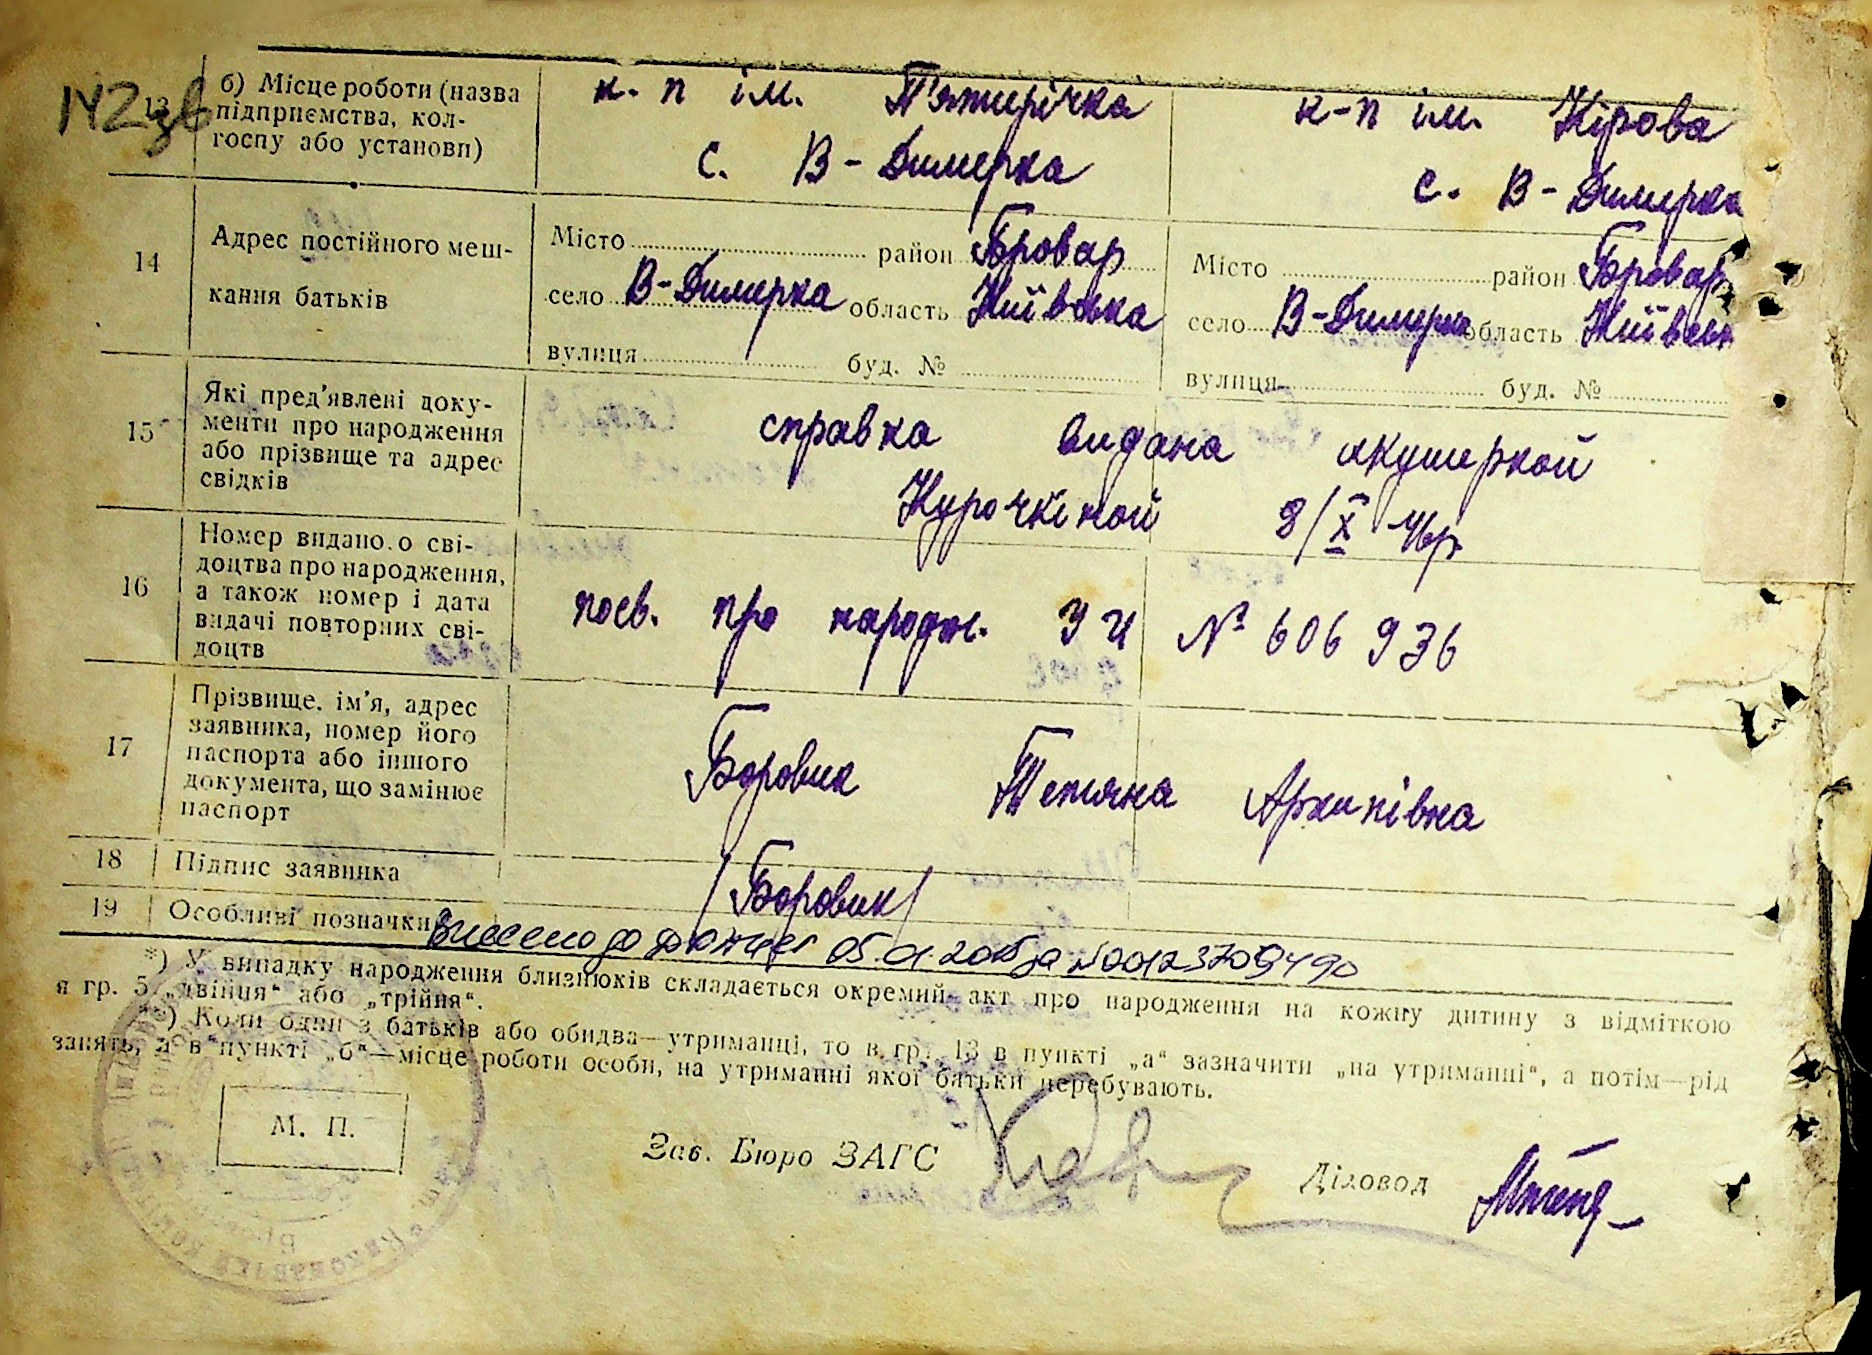 142 зв
13
б) Місце роботи (назва
підприємства, кол-
госпу або установи)
к-п ім. П'ятирічка
с. В-Димерка
к-п ім. Кірова
с. В-Димерка
14
Адрес постійного меш-
кання батьків
Місто район Бровар
село В-Димерка область Київська
вулиця буд. №
Місто район Бровар
село В-Димерка область Київськ
вулиця буд. №
15
Які пред'явлені доку-
менти про народження
або прізвище та адрес
свідків
справка видана акушеркой
Курочкіной 8/X 46р.
16
Номер видано.о сві-
доцтва про народження,
а також номер і дата
видачі повторних сві-
доцтв
посв. про народж. УЧ № 606936
17
Прізвище, ім'я, адрес
заявника, номер його
паспорта або іншого
документа, що замінює
паспорт
Боровик Тетяна Архипівна
18
Підпис заявника
/Боровик/
19
Особливі позначки
Внесено до 05.01.2015 за №00123709490
*) У випадку народження близнюків складається окремий акт про народження на кожну дитину з відміткою
в гр. 5 „двійня“ або „трійня“.
*) Коли один з батьків або обидва—утриманці, то в гр. 13 в пункті „а“ зазначити „на утриманні“, а потім—рід
занять, а в пункті „б“—місце роботи особи, на утриманні якої батьки перебувають.
М. П.
Зав. Бюро ЗАГС
Діловод